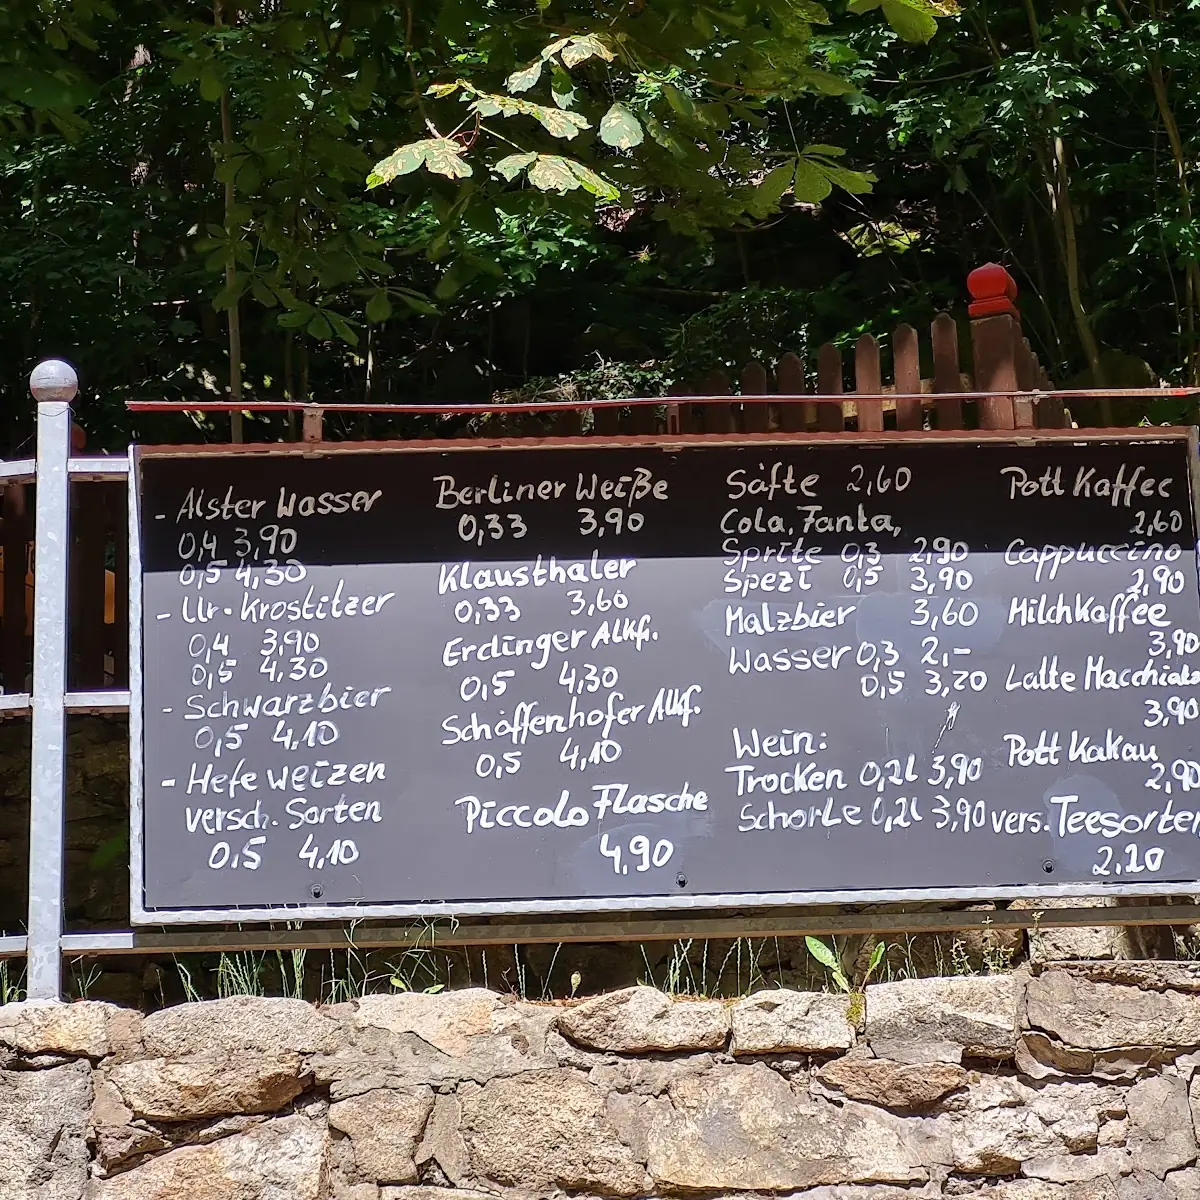 - Alster Wasser
0,4 3,90
0,5 4,30
- Ur. Krostitzer
0,4 3,90
0,5 4,30
- Schwarzbier
0,5 4,10
- Hefe weizen
versch. Sorten
0,5 4,10
Berliner Weiße
0,33 3,90
Klausthaler
0,33 3,60
Erdinger Alkf.
0,5 4,30
Schöffenhofer Alkf.
0,5 4,10
Piccolo Flasche
4,90
Säfte 2,60
Cola, Fanta,
Sprite 0,3 2,90
Spezi 0,5 3,90
Malzbier 3,60
Wasser 0,3 2,-
0,5 3,20
Wein:
Trocken 0,2l 3,90
Schorle 0,2l 3,90
Pott Kaffee
2,60
Cappuccino
2,90
Milchkaffee
3,90
Latte Macchiato
3,90
Pott Kakau
2,90
vers. Teesorten
2,20